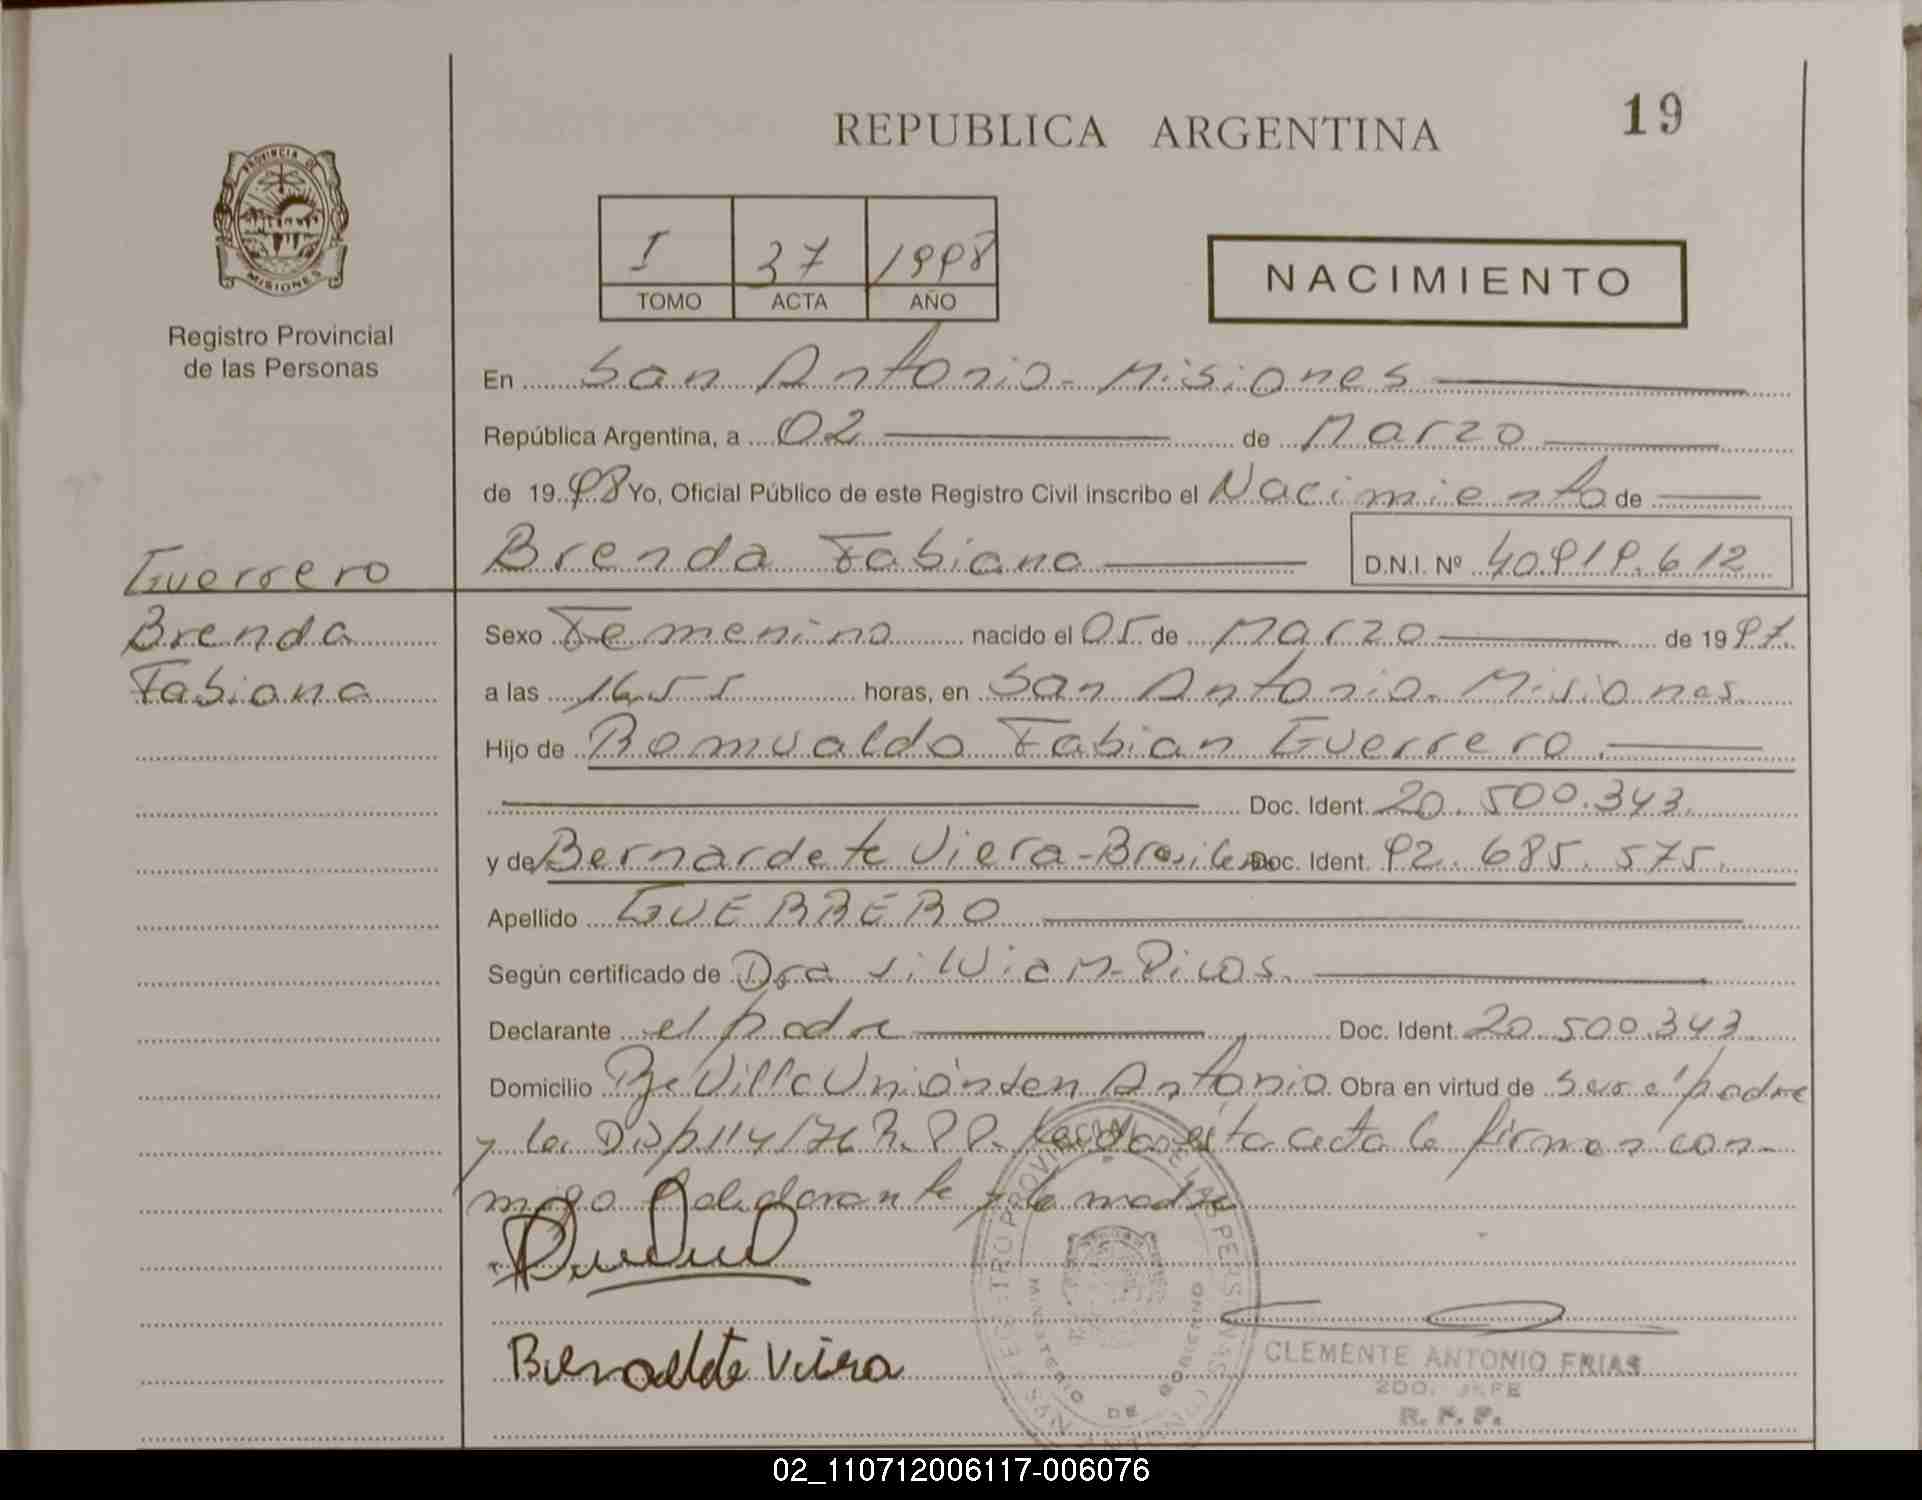 REPUBLICA ARGENTINA
19
PROVINCIA DE
MISIONES
Registro Provincial
de las Personas
I 37 1998
TOMO ACTA AÑO
NACIMIENTO
En San Antonio - Misiones
República Argentina, a 02 de Marzo
de 1998 Yo, Oficial Público de este Registro Civil inscribo el Nacimiento de
Brenda Fabiana D.N.I. Nº 40.919.612
Guerrero
Brenda
Fabiana
Sexo Femenino nacido el 05 de Marzo de 1997.
a las 16,55 horas, en San Antonio - Misiones
Hijo de Romualdo Fabian Guerrero.
Doc. Ident. 20.500.343.
y de Bernardete Viera - Doc. Ident. 92.685.575.
Apellido GUERRERO
Según certificado de Dra
Declarante el padre Doc. Ident. 20.500.343
Domicilio Villa Unión Antonio Obra en virtud de ser el padre
y la Disp. 114/76 R.P.P. Leida esta acta la firman con-
migo declarante y la madre
Bernadete Vieira
REGISTRO PROVINCIAL DE LAS PERSONAS
MINISTERIO DE GOBIERNO
CLEMENTE ANTONIO FRIAS
2DO. JEFE
R. P. P.
02_110712006117-006076